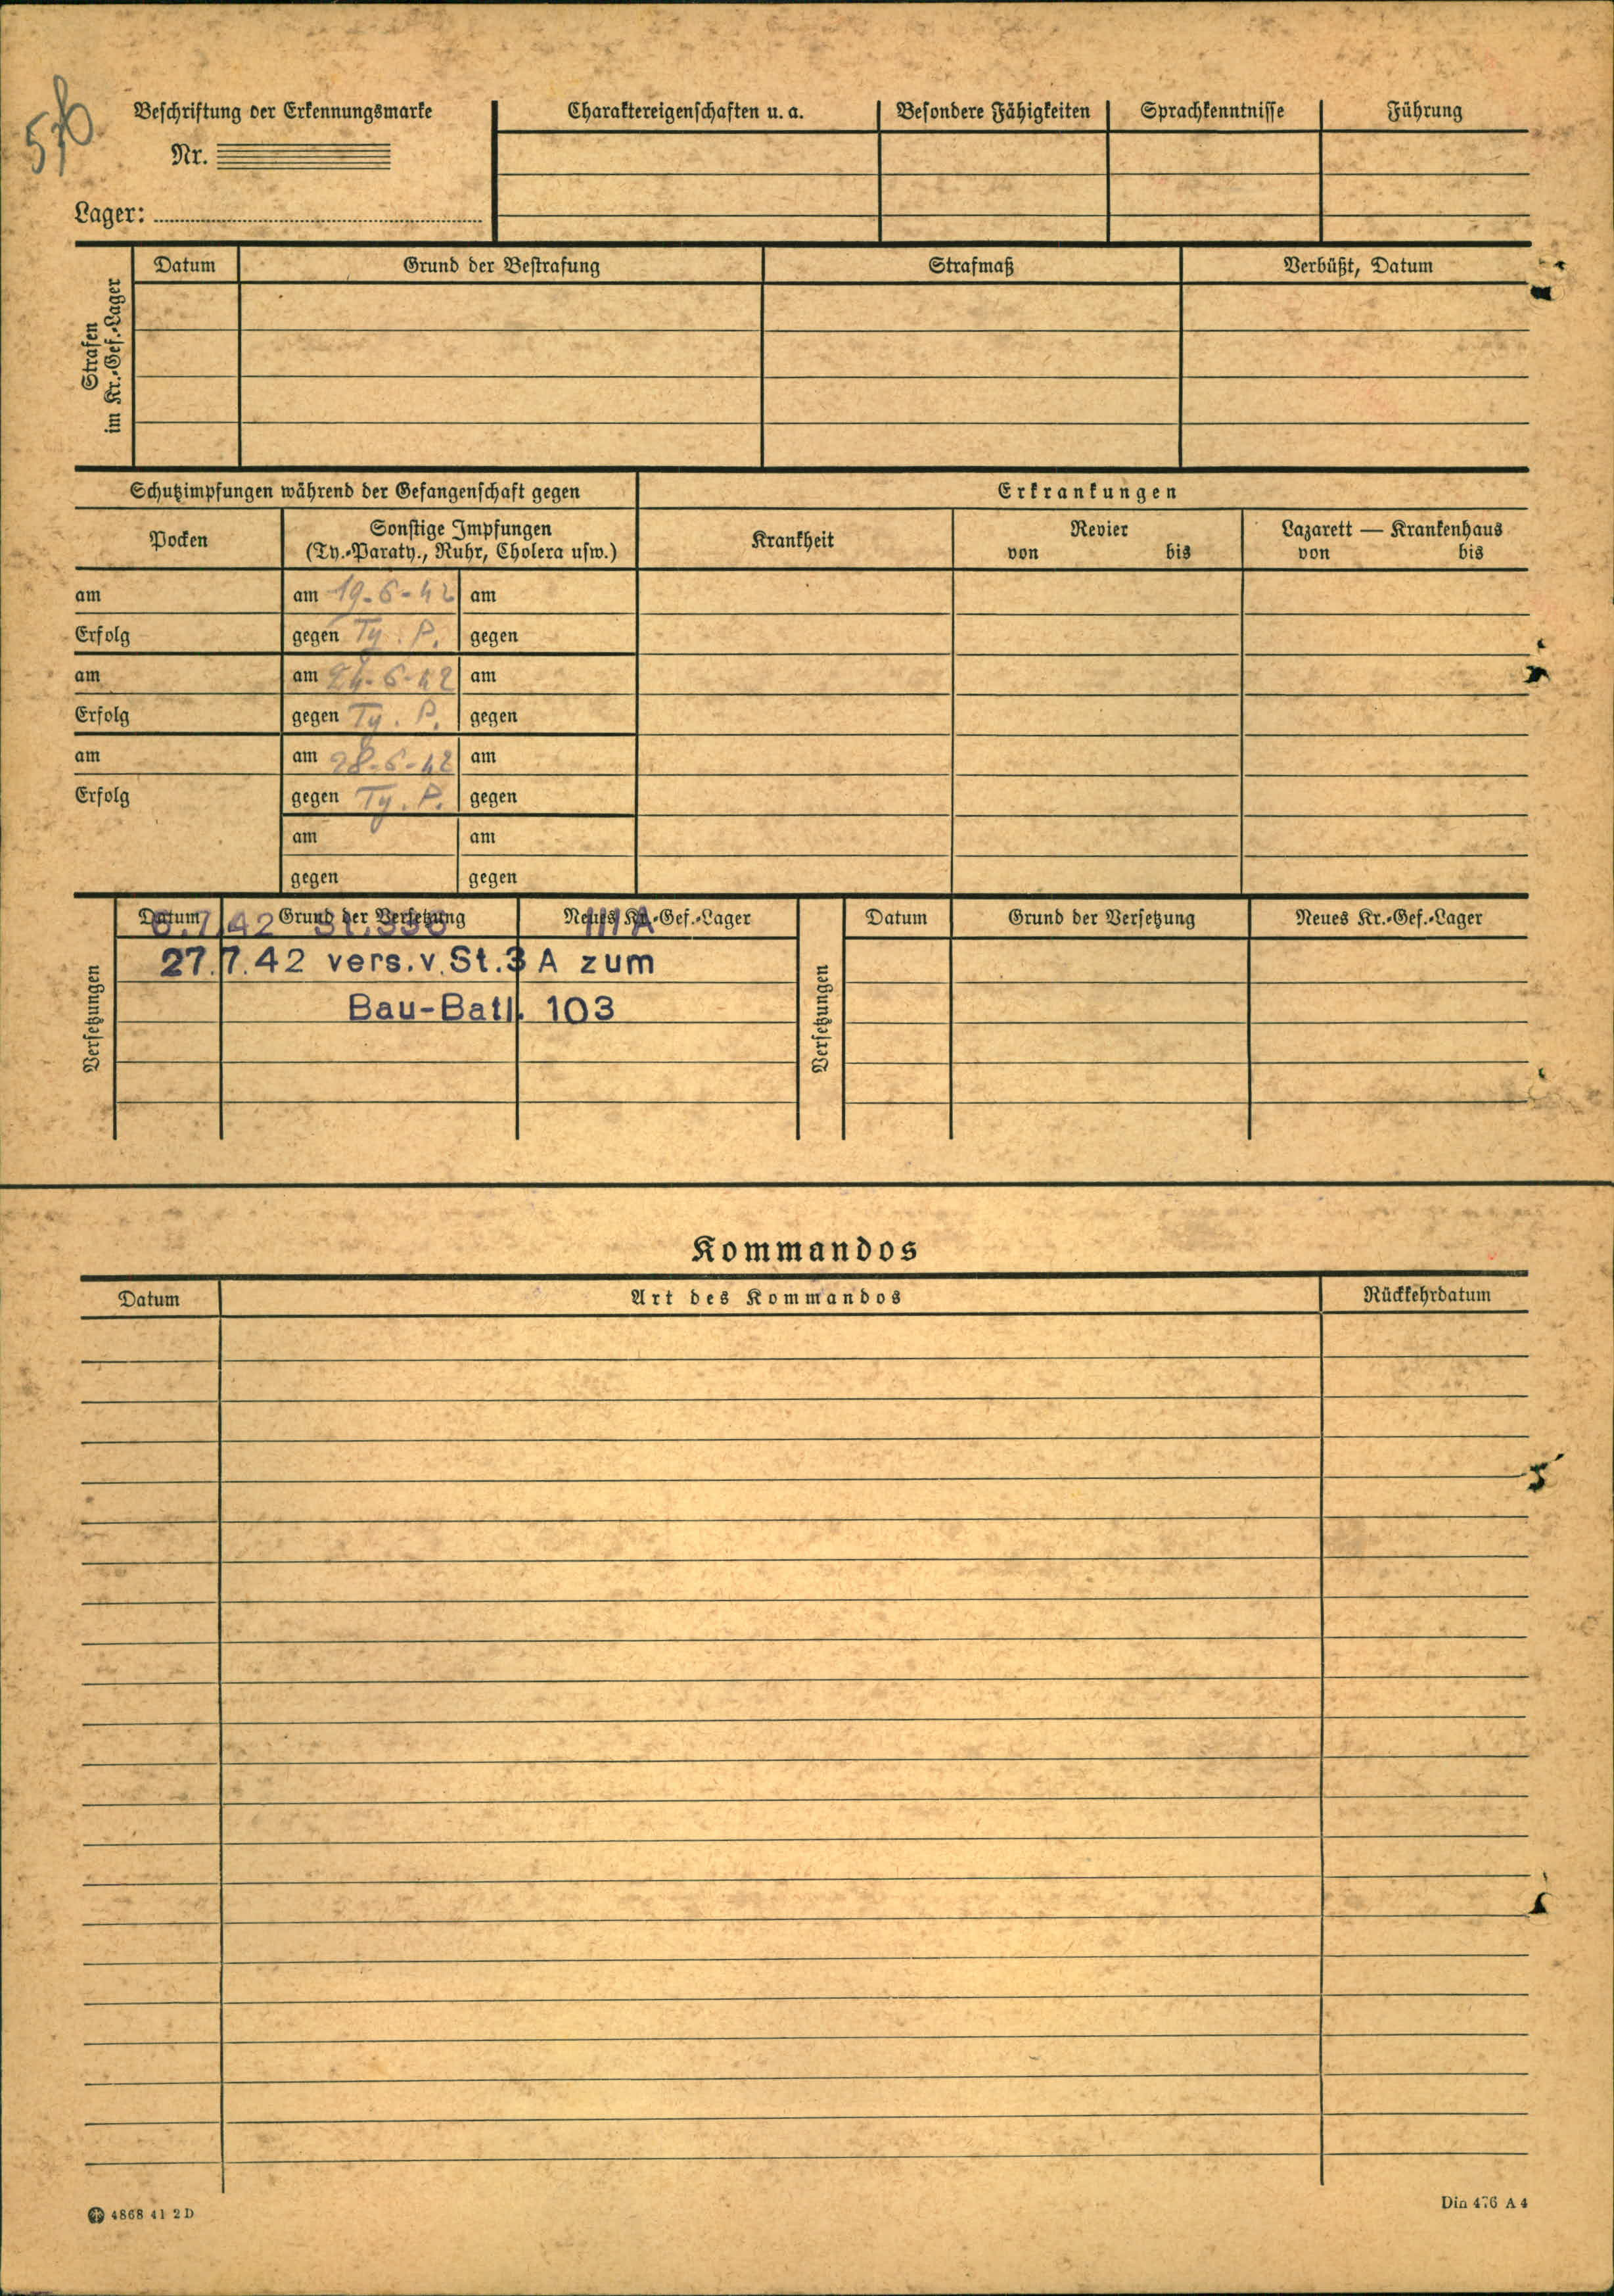 576
Beschriftung der Erkennungsmarke
Nr.
Lager:
Charaktereigenschaften u. a. Besondere Fähigkeiten Sprachkenntnisse Führung
Strafen
im Kr.-Gef.-Lager
Datum Grund der Bestrafung Strafmaß Verbüßt, Datum
Schutzimpfungen während der Gefangenschaft gegen Erkrankungen
Pocken Sonstige Impfungen
(Ty.-Paraty., Ruhr, Cholera usw.) Krankheit Revier
von bis Lazarett — Krankenhaus
von bis
am am 19-6-42 am
Erfolg gegen Ty. P. gegen
am am 24-6-42 am
Erfolg gegen Ty. P. gegen
am am 28-6-42 am
Erfolg gegen Ty. P. gegen
am am
gegen gegen
Versetzungen
Datum Grund der Versetzung Neues Kr.-Gef.-Lager
7.42 St. 336 III A
27.7.42 vers.v.St.3 A zum
Bau-Batl. 103
Versetzungen
Datum Grund der Versetzung Neues Kr.-Gef.-Lager
Kommandos
Datum Art des Kommandos Rückkehrdatum
4868 41 2 D
Din 476 A 4